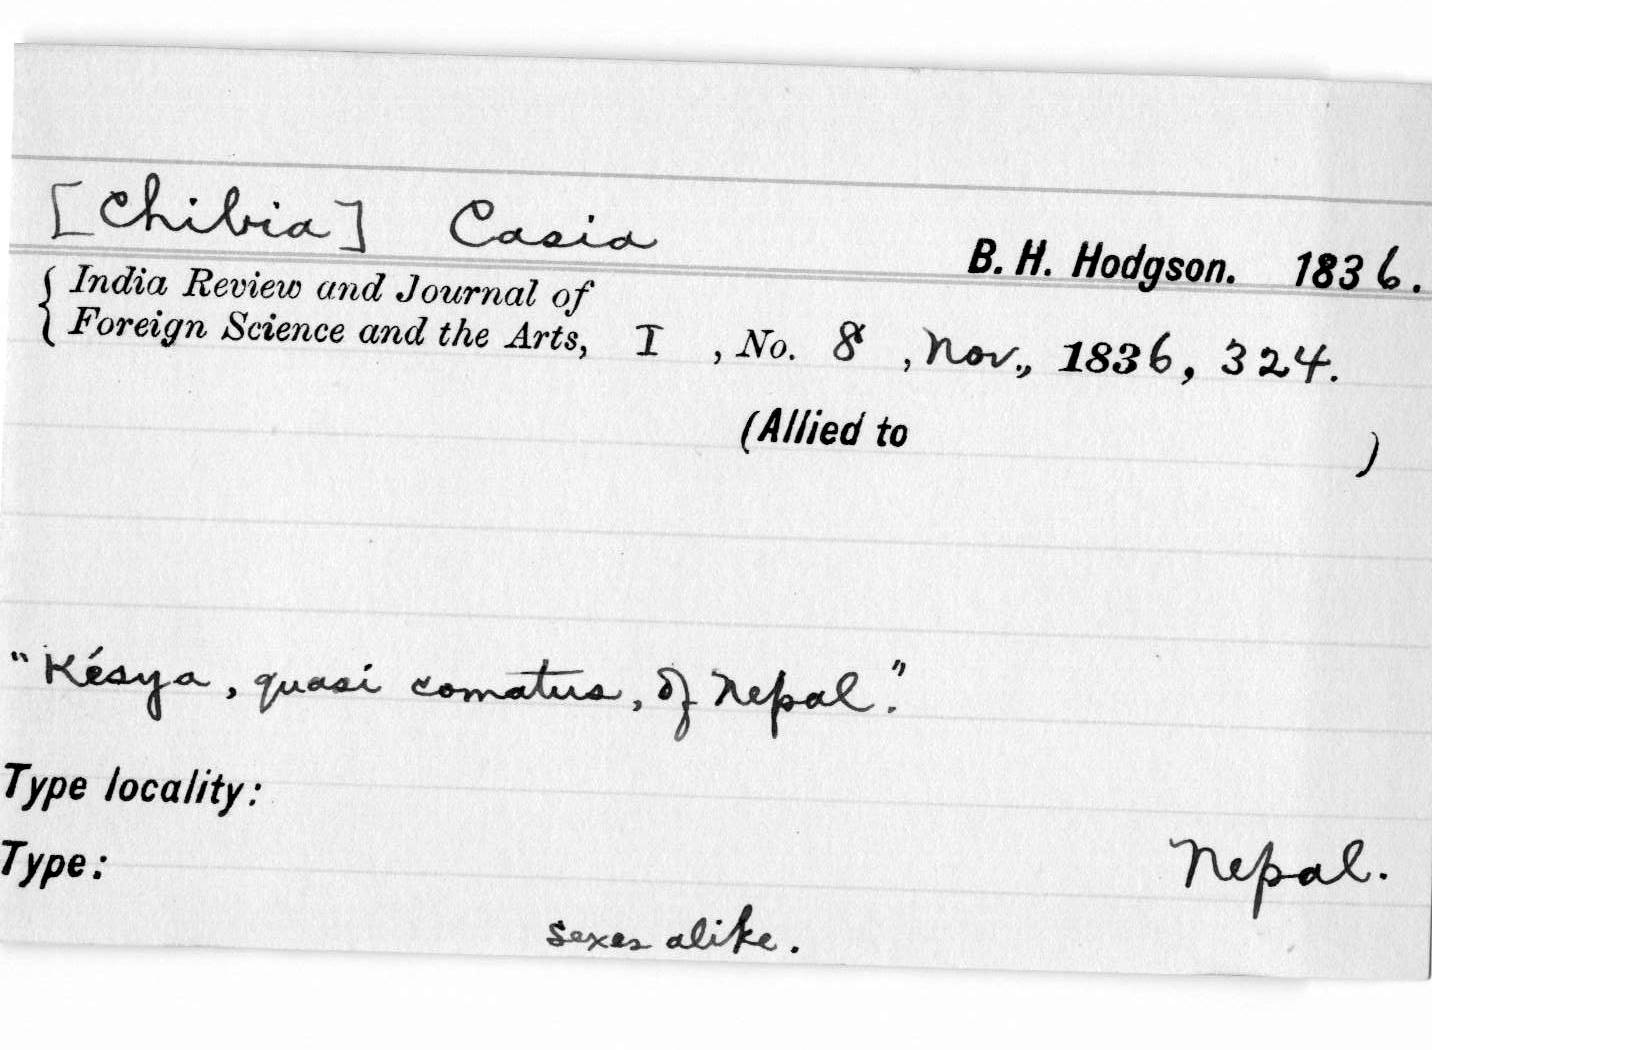 [Chibia] Casia
B. H. Hodgson. 1836.
{ India Review and Journal of
Foreign Science and the Arts, I , No. 8 , Nov., 1836, 324.
(Allied to )
"Késya, quasi comatus, of Nepal."
Type locality:
Nepal.
Type:
sexes alike.